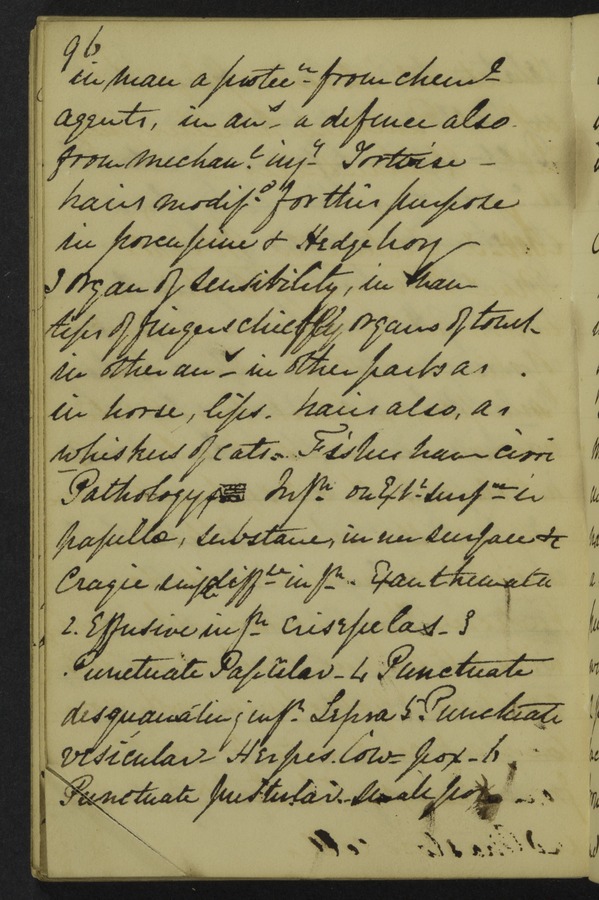 96
in man a protecn from cheml
agents, in ans a defence also
from mechanl injy Tortoise -
hairs modifd for this purpose
in porcupine & Hedgehog
3 organ of sensibility, in man
tips of fingers chiefly organs of touch
in other ans in other parts as
in horse, lips. hairs also, as
whiskers of cats. Fishes have cirri
Pathology Infn on Extl surfce in
papullæ, substance, inner surface &c
Cragie simple diffve infn. Exanthemata
2. Effusive infn erisypelas - 3
Punctuate Papular - 4 Punctuate
desquamating infn Lepra 5 Punctuate
vesicular Herpes. Cow-pox - 6
Punctuate pustular. small pox